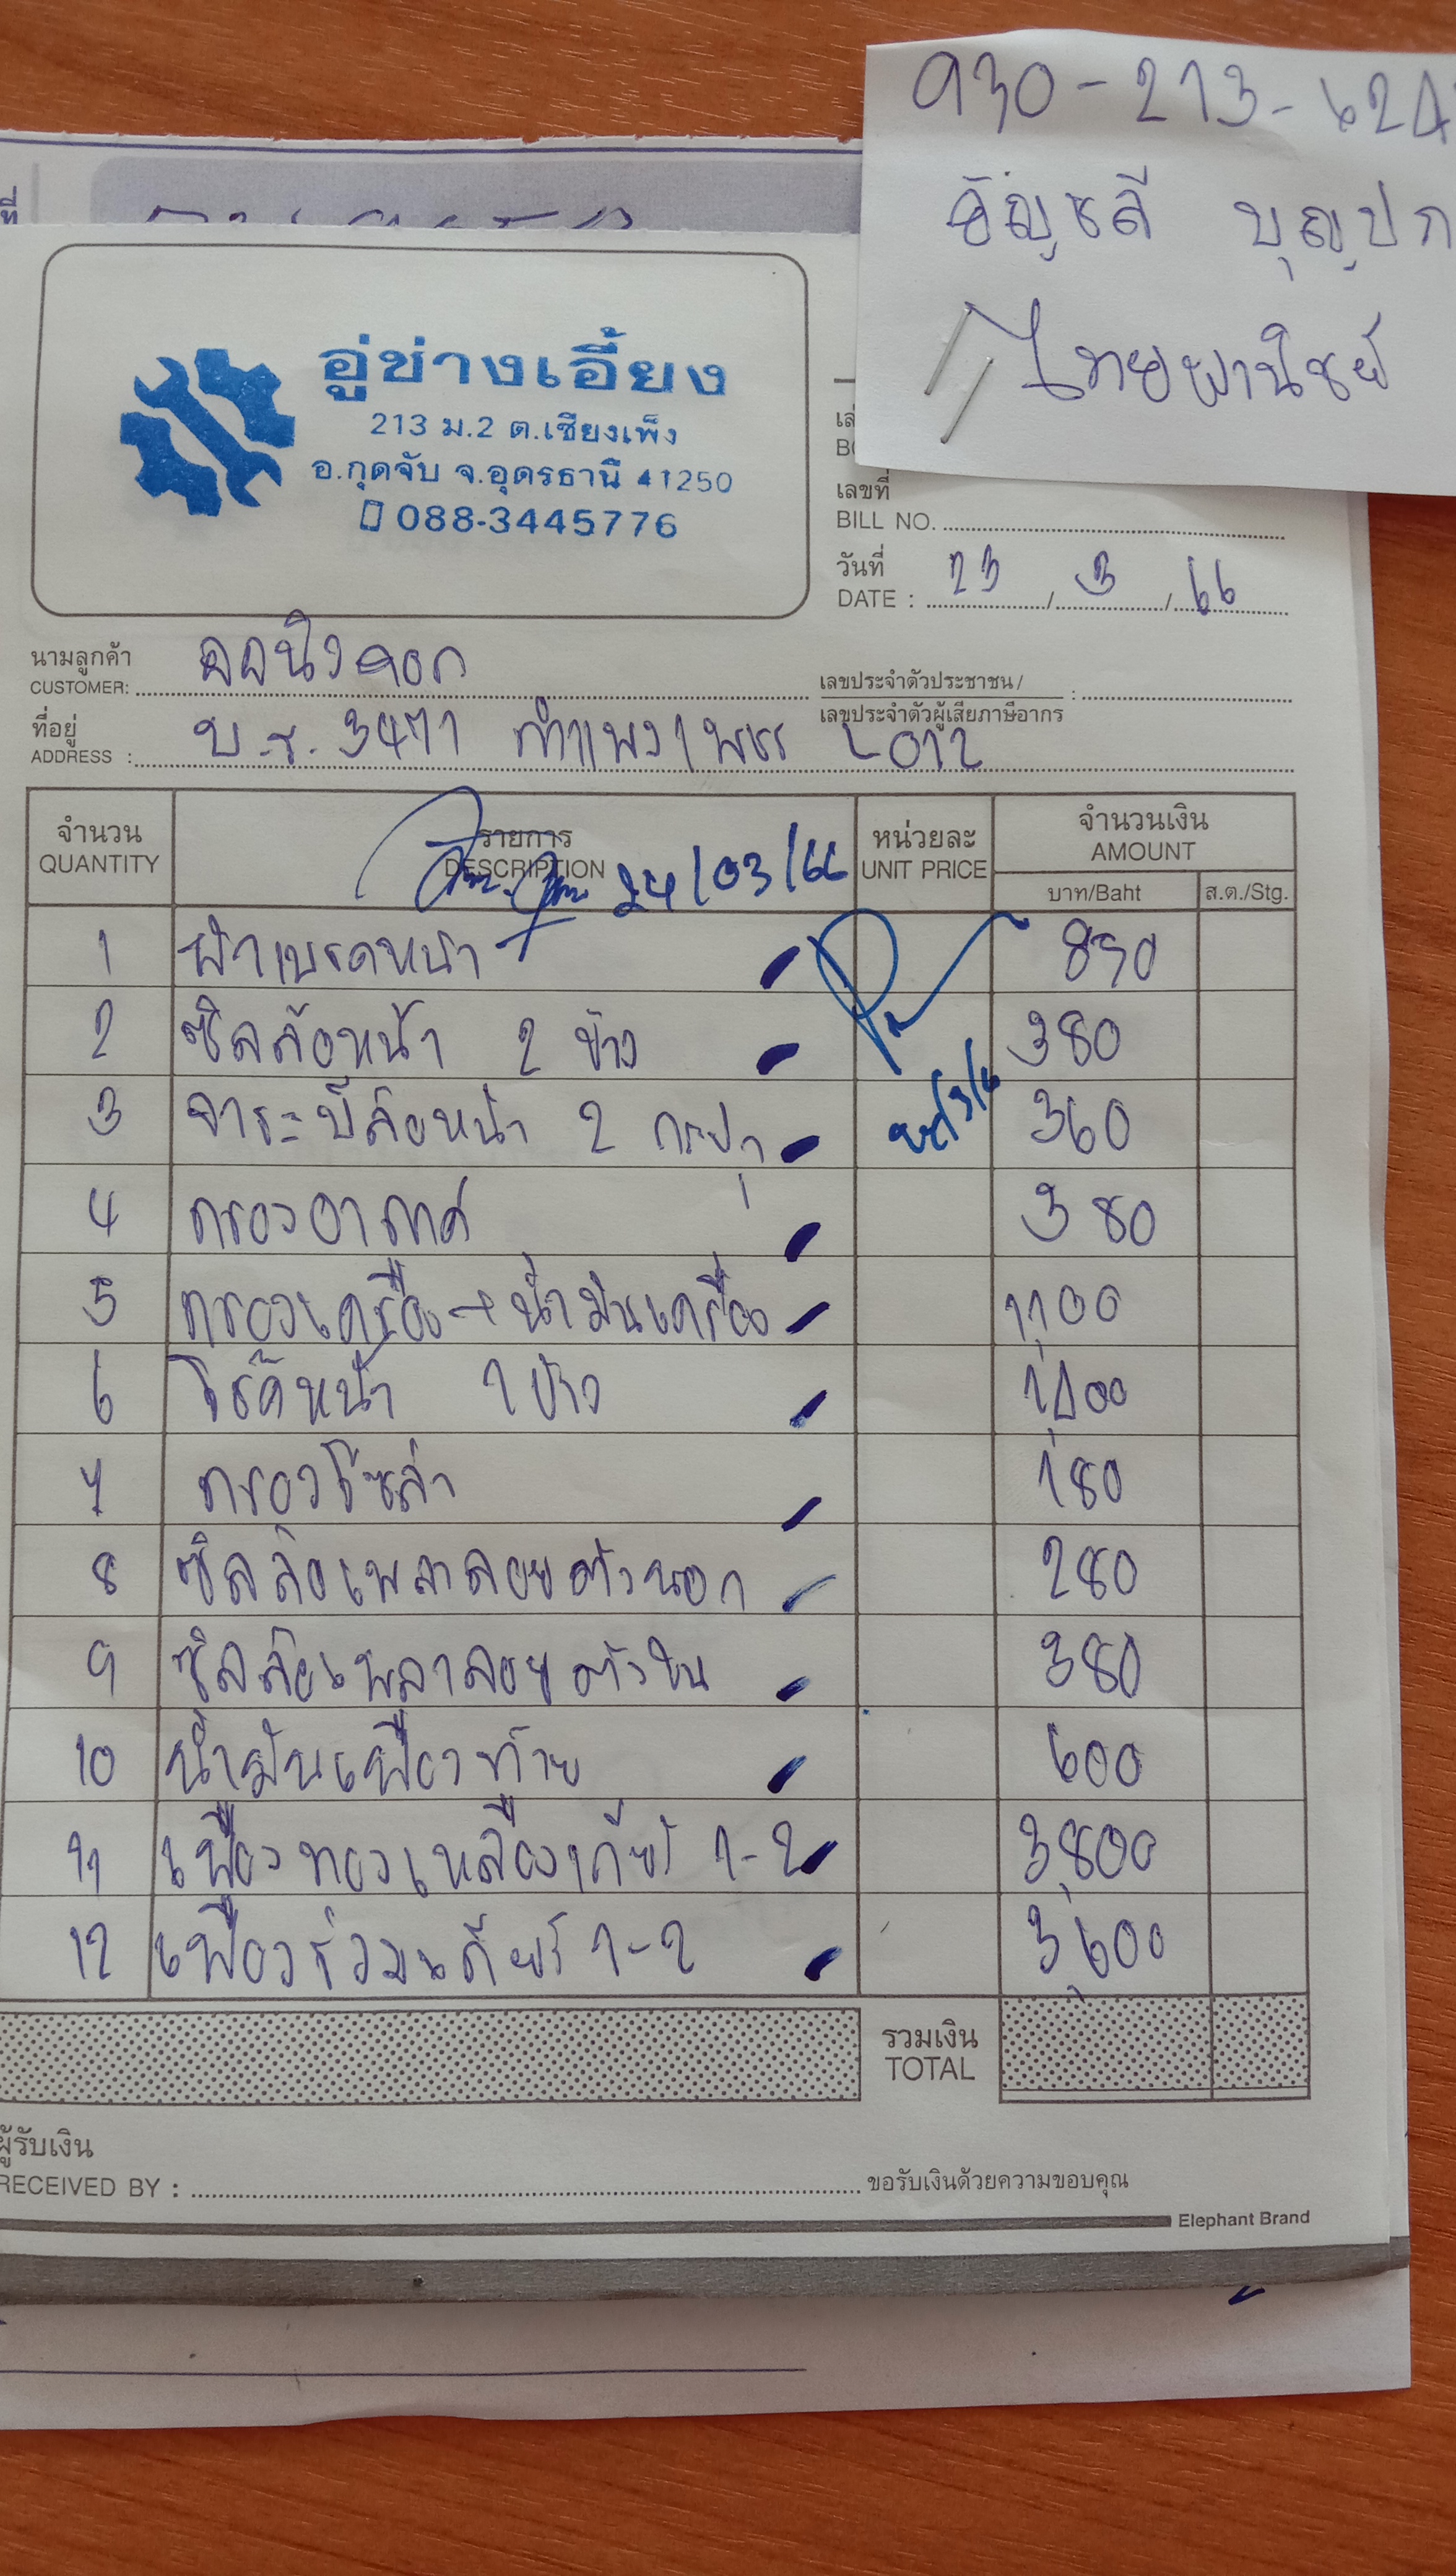 930-213-624
อัญชลี บุญปก
ไทยพานิชย์
ที่
อู่ช่างเอี้ยง
213 ม.2 ต.เชียงเพ็ง
อ.กุดจับ จ.อุดรธานี 41250
088-3445776
เลขที่
BILL NO.
วันที่
DATE : 23 / 3 / 66
นามลูกค้า
CUSTOMER:
เลขประจำตัวประชาชน /
เลขประจำตัวผู้เสียภาษีอากร :
ที่อยู่
ADDRESS : บ.ร. 3471 กำแพงเพชร L012
จำนวน รายการ หน่วยละ จำนวนเงิน
QUANTITY DESCRIPTION UNIT PRICE AMOUNT
บาท/Baht ส.ต./Stg.
24/03/66
1 ผ้าเบรคหน้า 890
2 ซิลล้อหน้า 2 ข้าง 380
3 จาระบีล้อหน้า 2 กระปุก 360
4 กรองอากาศ 380
5 กรองเครื่อง+น้ำมันเครื่อง 1,100
6 โช๊คหน้า 2 ข้าง
7 กรองโซล่า 180
8 ซิลล้อเพลาลอยตัวนอก 280
9 ซิลล้อเพลาลอยตัวใน 380
10 น้ำมันเฟืองท้าย 600
11 เฟืองทองเหลืองเกียร์ 1-2 3,800
12 เฟืองร่วมเกียร์ 1-2 3,600
รวมเงิน
TOTAL
ผู้รับเงิน
RECEIVED BY :
ขอรับเงินด้วยความขอบคุณ
Elephant Brand